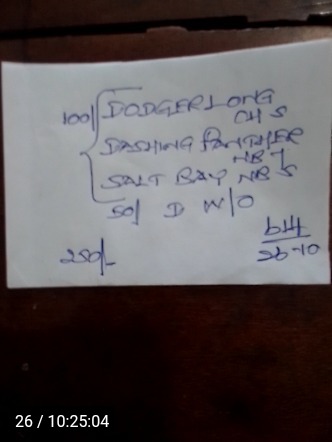 100/ DODGER LONG
CH S
DASHING PANTHER
NB J
SALT BAY NB S
50/ D W/O
b44
250/-
26-10
26 / 10:25:04